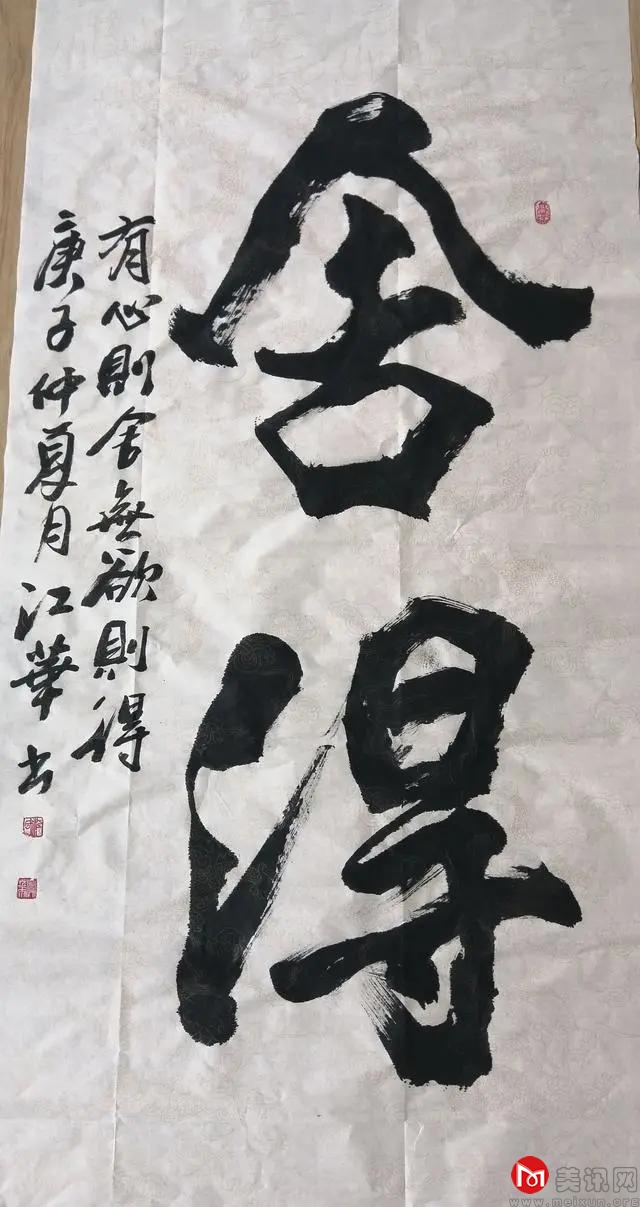 舍得
有心則舍無欲則得
庚子仲夏月江華书
美讯网
www.meixun.org